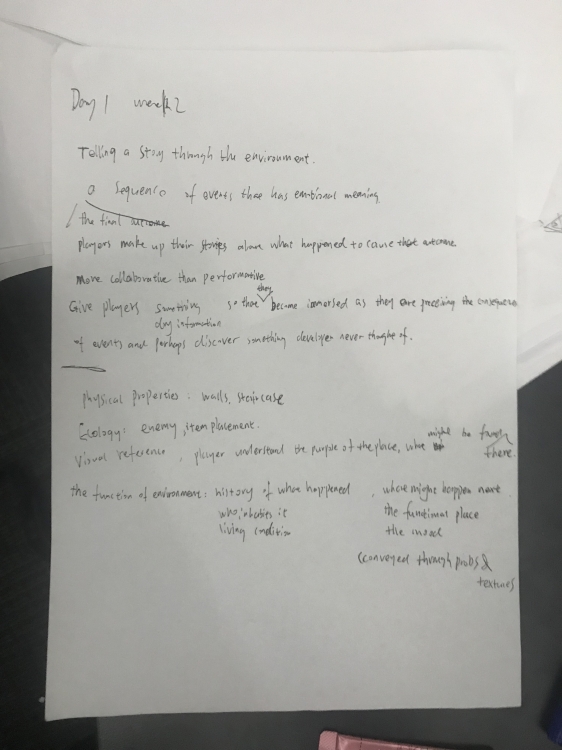 Day 1 week 2
Telling a story through the environment.
a sequence of events that has emotional meaning.
the final outcome
players make up their stories about what happened to cause that outcome.
More collaborative than performative
Give players something so that they become immersed as they are piecing the consequence
any information
of events and perhaps discover something developer never thought of.
Physical properties: walls, staircase
Ecology: enemy, item placement.
Visual reference, player understand the purpose of the place, what might be found there.
the function of environment: history of what happened, what might happen next.
who inhabits it the functional place
living condition the mood
(conveyed through probs &
textures